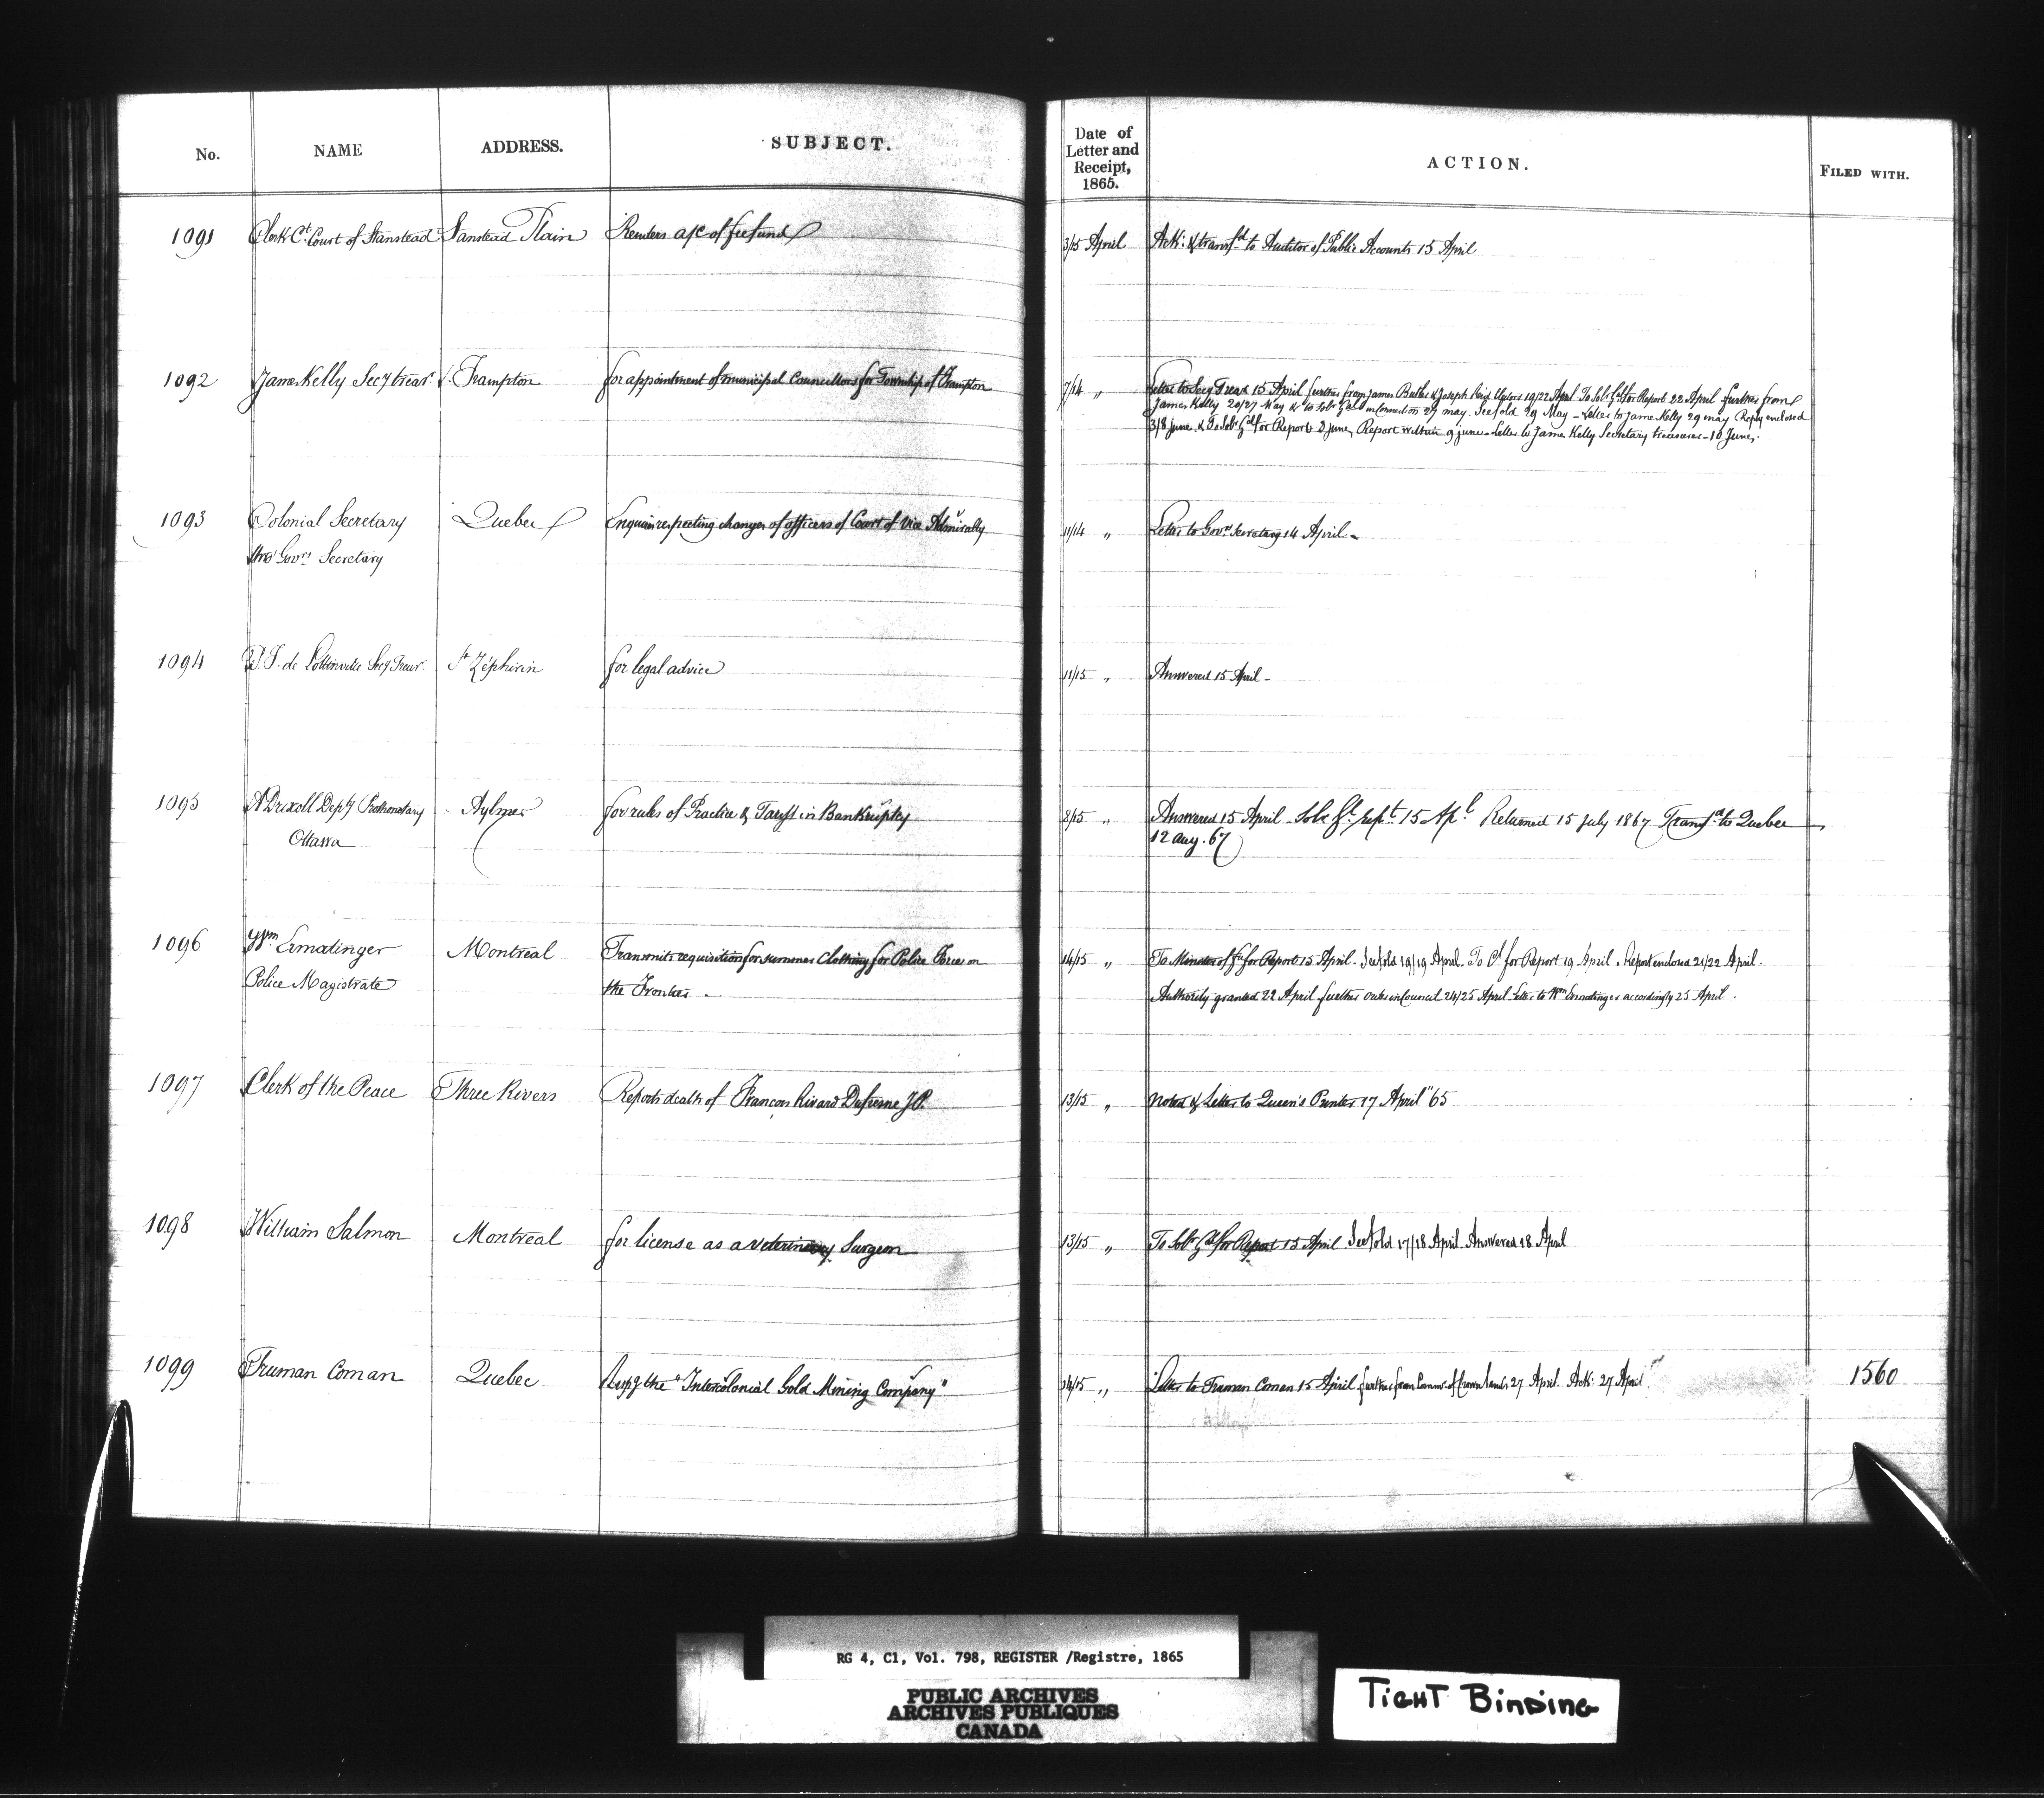 No. NAME ADDRESS. SUBJECT. Date of Letter and Receipt, 1865. ACTION. FILED WITH.
1091 Clerk Ct. Court of Stanstead Stanstead Plain Renders a/c of fee fund 3/15 April Ack: & transfd. to Auditor of Public Accounts 15 April
1092 James Kelly Secy treasr. Frampton for appointment of municipal Councillors for Township of Frampton 7/14 " Letter to Secy Treasr 15 April further from James Butler & Joseph 19/22 April To Solr. Gal for Report 22 April further from
James Kelly 20/27 May & to Solr Gal in connection 27 may. See fold 29 May - Letter to James Kelly 29 may Reply enclosed
3/8 june & To Solr. Gal for Report 8 june, Report within 9 june - Letter to James Kelly Secretary treasurer - 10 June.
1093 Colonial Secretary Quebec Enquiries respecting changes of officers of Court of Vice Admiralty 11/14 " Letter to Govrs. Secretary 14 April -
thro' Govrs. Secretary
1094 de Secy Treasr. St Zéphirin for legal advice 11/15 " Answered 15 April -
1095 A Driscoll Depty Prothonotary Aylmer for rules of Practice & Tariff in Bankruptcy 8/15 " Answered 15 April - Solr Gl. rept. 15 Apl. Returned 15 July 1867 Transfd. to Quebec
Ottawa 12 Aug. 67
1096 Wm. Ermatinger Montreal Transmits requisition for summer clothing for Police Force on 14/15 " To Minister of for Report 15 April. See fold 19/19 April. To for Report 19 April. Report enclosed 21/22 April.
Police Magistrate the Frontier. Authority granted 22 April further order in Council 24/25 April Letter to Wm Ermatinger accordingly 25 April.
1097 Clerk of the Peace Three Rivers Reports death of Francois Rivard Dufresne J.P. 13/15 " Noted & Letter to Queen's Printer 17 April "65
1098 William Salmon Montreal for license as a veterinary Surgeon 13/15 " To Solr. Gal for Report 15 April See fold 17/18 April. Answered 18 April
1099 Truman Coman Quebec Respg the "Intercolonial Gold Mining Company" 14/15 " Letter to Truman Coman 15 April further from Commr. of Crown lands 27 April. Ack: 27 April. 1560
RG 4, C1, Vol. 798, REGISTER /Registre, 1865
PUBLIC ARCHIVES
ARCHIVES PUBLIQUES
CANADA
TIGHT BINDING